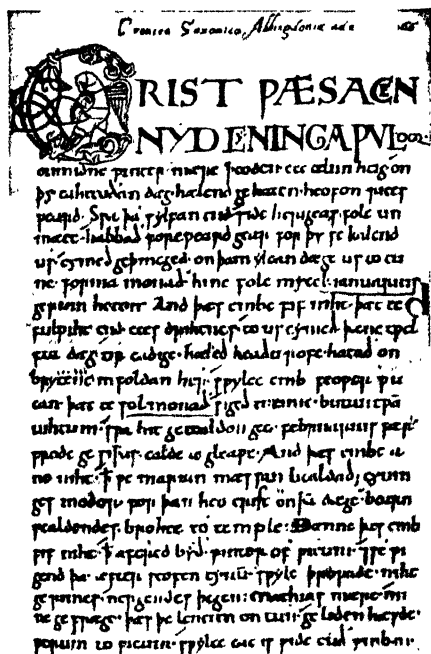 Cronica Saxonica, Abbingdoniæ
CRIST ǷÆS ACEN
NYD CENINGA ǷULDOR
on midne ƿinter mære þeoden ece ælmihtig on
þy eahteoðan dæg hælend gehaten heofon rices
ƿeard. Sƿa þa sylfan tiid side herigeas folc un
mæte habbað foreƿeard gear for þy se kalend
us cymeð geþincged on þam ylcan dæge us to tu
ne forma monað hine folc mycel ianuarius
gerum heton And þæs embe fif niht þætte
fulƿiht tiid eces drihtnes to us cymeð þæne tƿel
fta dæg tir eadige hæleð heaðu rofe hatað on
in foldan her sƿylce emb feoƿer ƿu
can þætte sol monað sigeð to tune butan tƿam
nihtum sƿa hit getealdon geo februarius fær
frode gesiþas ealde And þæs embe a
ne niht ꝥ ƿe marian mæssan healdað cynin
ges modor heo crist on dæge bearn
ƿealdendes brohte to temple Ðænne þæs emb
fif niht ꝥ afered byð ƿinter of ƿicum ⁊ se ƿi
gend þa æfter seofentynum sƿylce niht
gerimes nergendes þegen mathias mære mi
ne gefræge þæs þe lencten on tun geliden hæfde
ƿerum to ƿicum sƿylce eac is ƿide cuð ymb iii